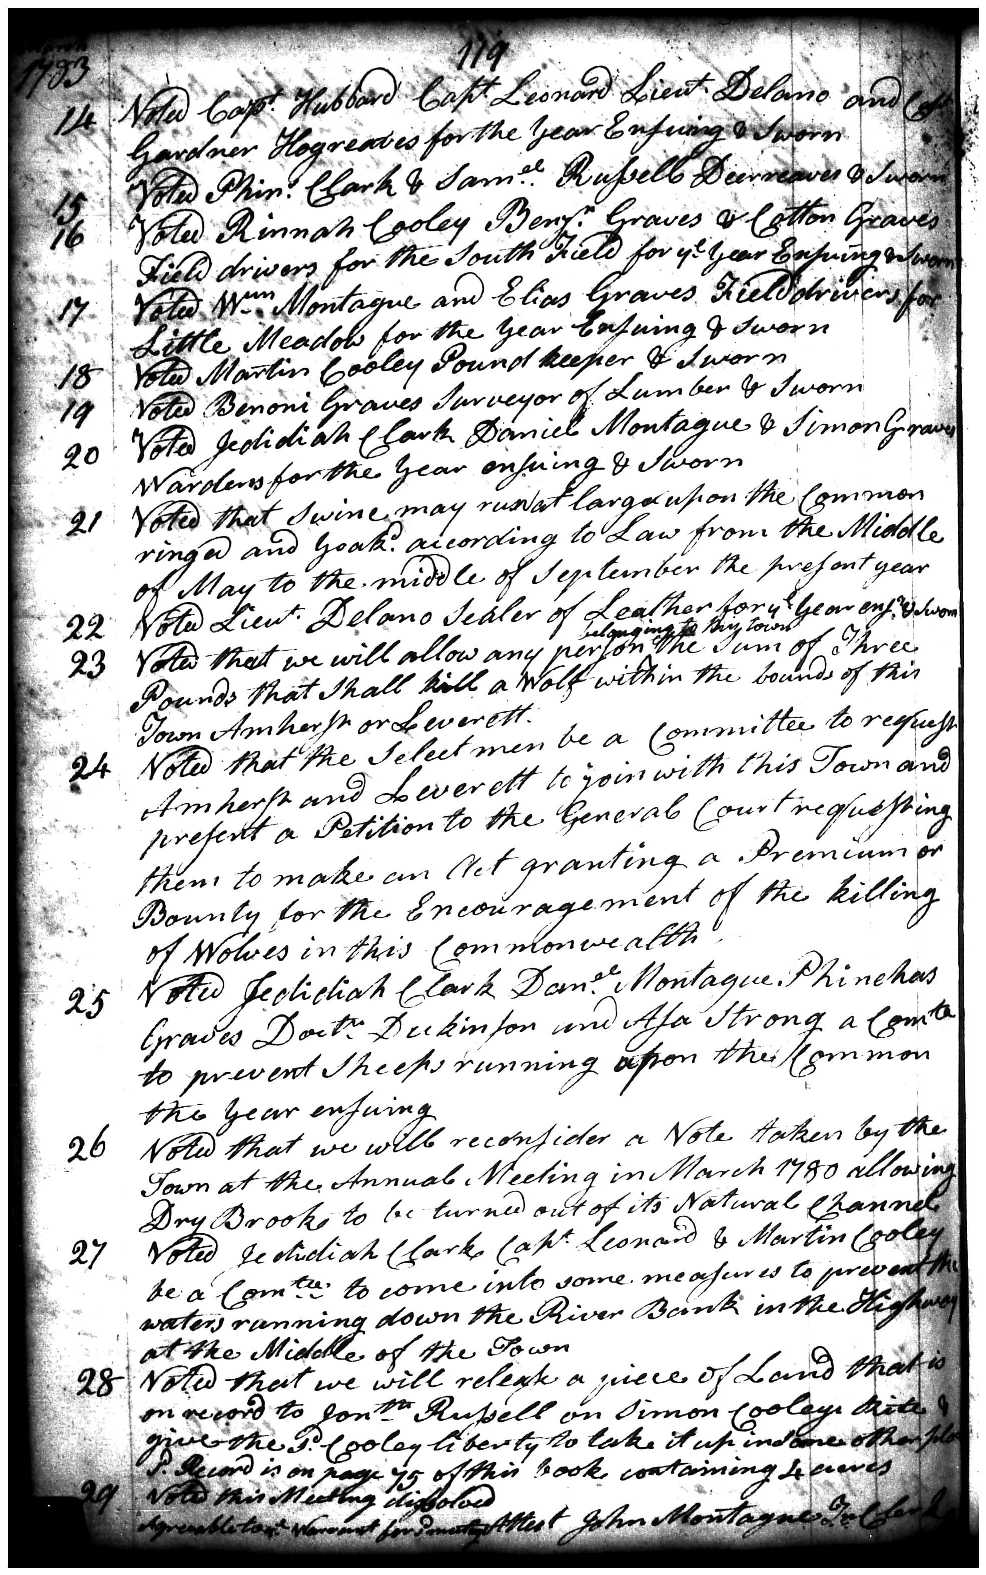 119
1783
14 Voted Capt. Hubbard Capt Leonard Lieut. Delano and Capt
Gardner Hogreaves for the Year Ensuing & Sworn
15 Voted Phins. Clark & Samel. Russell Deerreaves & Sworn
16 Voted Rinnah Cooley Benjn Graves & Cotton Graves
Field drivers for the South Field for ye Year Ensuing & Sworn
17 Voted Wmm Montague and Elias Graves Field drivers for
Little Meadow for the Year Ensuing & Sworn
18 Voted Martin Cooley Pound keeper & Sworn
19 Voted Benoni Graves Surveyor of Lumber & Sworn
20 Voted Jedidiah Clark Daniel Montague & Simon Graves
Wardens for the Year ensuing & Sworn
21 Voted that Swine may run at large upon the Common
ringed and Yoakd. according to Law from the Middle
of May to the middle of September the present year
22 Voted Lieut. Delano Sealer of Leather for ye Year ensg & Sworn
belonging to this town
23 Voted that we will allow any person the Sum of Three
Pounds that Shall kill a Wolf within the bounds of this
Town Amherst or Leverett.
24 Voted that the Selectmen be a Committee to request
Amherst and Leverett to join with this Town and
present a Petition to the General Court requesting
them to make an Act granting a Premium or
Bounty for the Encouragement of the killing
of Wolves in this Commonwealth
25 Voted Jedidiah Clark Danel Montague Phinehas
Graves Doctr. Dickinson and Asa Strong a Comte
to prevent Sheeps running upon the Common
the Year ensuing
26 Voted that we will reconsider a Vote taken by the
Town at the Annual Meeting in March 1780 allowing
Dry Brook to be turned out of its Natural Channel
27 Voted Jedidiah Clark Capt. Leonard & Martin Cooley
be a Comtee. to come into some measures to prevent the
waters running down the River Bank in the Highway
at the Middle of the Town
28 Voted that we will release a piece of Land that is
on record to Jonthn Russell on Simon Cooleys &
give the sd. Cooley liberty to take it up in some other
sd. Record is on page 75 of this book containing 4 acres
29 Voted this Meeting dissolved
Agreeable to Warrant for Attest John Montague Tn Clerk